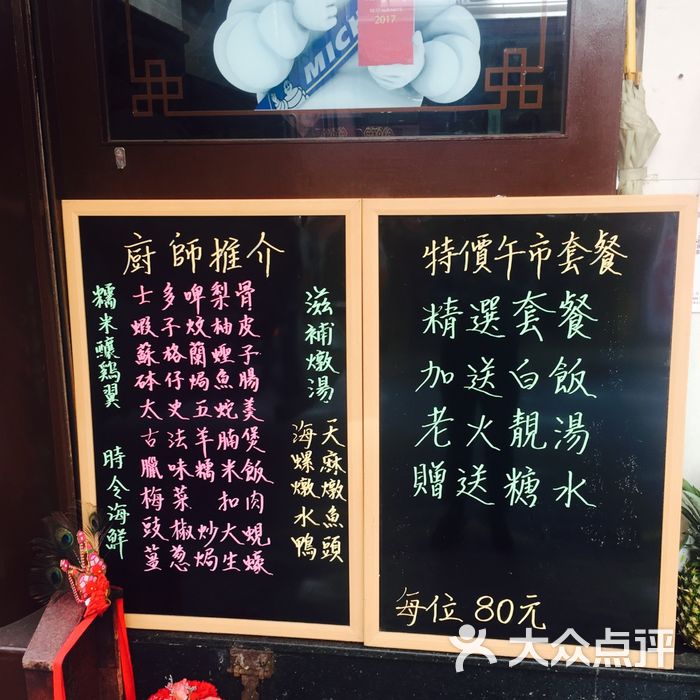 MICH
2017
廚師推介
糯米釀鷄翼
時令海鮮
士多啤梨骨
蝦子炆柚皮
蘇格蘭蟶子
砵仔焗魚腸
太史五蛇羹
古法羊腩煲
臘味糯米飯
梅菜扣肉
豉椒炒大蜆
薑葱焗生蠔
滋補燉湯
天麻燉魚頭
海螺燉水鴨
特價午市套餐
精選套餐
加送白飯
老火靚湯
贈送糖水
每位80元
大众点评